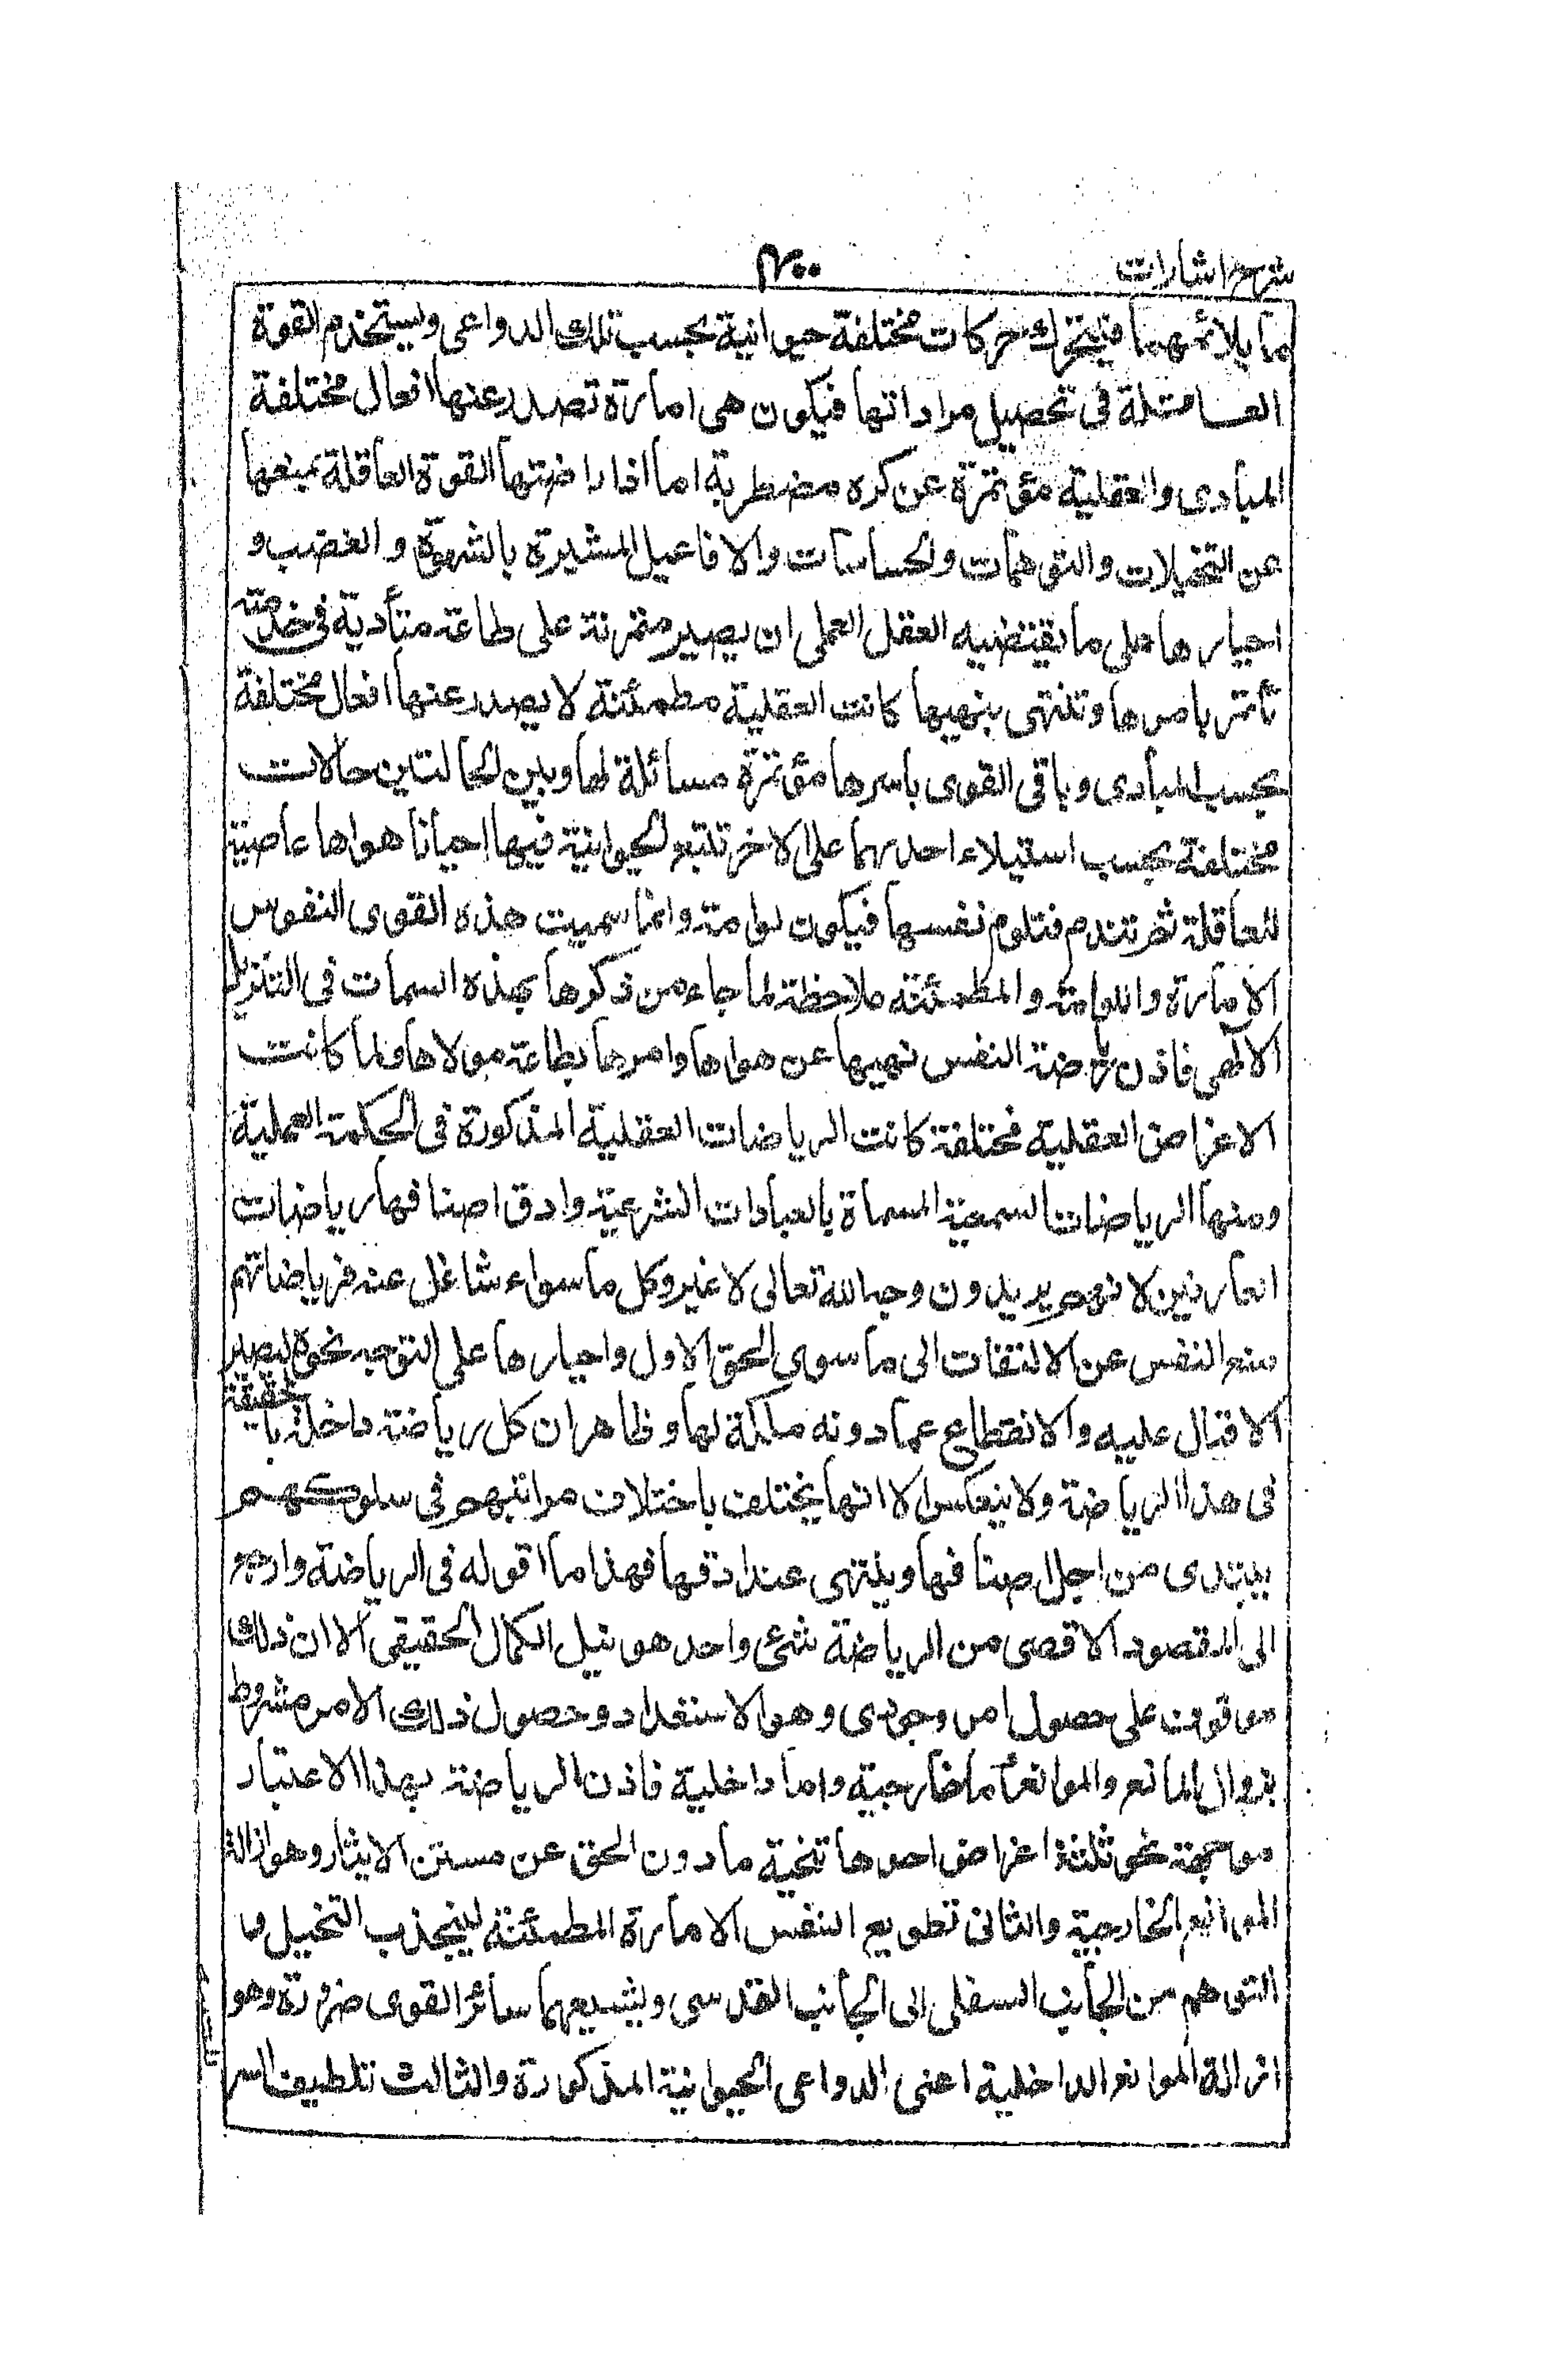 شرح اشارات
۴۰۰
ما يلائمهما فيتحرك حركات مختلفة حيوانية بحسب تلك الدواعى ويستخدم القوة
العاقلة فى تحصيل مراداتها فيكون هى امارة تصدر عنها افعال مختلفة
المبادى والعقلية مؤتمرة عن كره مضطربة اما اذا راضتها القوة العاقلة بمنعها
عن التخيلات والتوهمات والحساسات والافاعيل المشيرة بالشهوة و الغضب و
اجبارها على ما يقتضيه العقل العملى ان يصير متمرنة على طاعة متأدية فى خدمته
تأتمر بامرها وتنتهى بنهيها كانت العقلية مطمئنة لا يصدر عنها افعال مختلفة
بحسب المبادى و باقى القوى باسرها مؤتمرة مسائلة لها وبين الحالتين حالات
مختلفة بحسب استيلاء احدهما على الاخر تتبع الحيوانية فيها احيانا هواها عاصية
للعاقلة ثم تندم فتلوم نفسها فيكون لوامة وانما سميت هذه القوى النفوس
الامارة واللوامة والمطمئنة ملاحظة لما جاء من ذكرها بهذه السمات فى التنزيل
الالهى فاذن رياضة النفس نهيها عن هواها وامرها بطاعة مولاها ولما كانت
الاغراض العقلية مختلفة كانت الرياضات العقلية المذكورة فى الحكمة العملية
ومنها الرياضات السمعية المسماة بالعبادات الشرعية وادق اصنافها رياضات
العارفين لانهم يريدون وجه الله تعالى لا غير وكل ما سواه شاغل عنه فرياضاتهم
منع النفس عن الالتفات الى ما سوى الحق الاول واجبارها على التوجه نحوه ليصير
الاقبال عليه والانقطاع عما دونه ملكة لها وظاهر ان كل رياضة داخلة بالحقيقة
فى هذا الرياضة ولا ينعكس الا انها يختلف باختلاف مراتبهم فى سلوكهم
يبتدى من اجل اصنافها وينتهى عند ادقها فهذا ما اقوله فى الرياضة وارجع
الى المقصود الاقصى من الرياضة شئ واحد هو نيل الكمال الحقيقى الا ان ذلك
موقوف على حصول امر وجودى وهو الاستعداد وحصول ذلك الامر مشروط
بزوال المانع والموانع اما خارجية واما داخلية فاذن الرياضة بهذا الاعتبار
موجهة نحو ثلثة اغراض احدها تنحية ما دون الحق عن مستن الايثار وهو ازالة
الموانع الخارجية والثانى تطويع النفس الامارة المطمئنة لينجذب التخيل و
التوهم من الجانب السفلى الى الجانب القدسى ويشيعهما سائر القوى ضرورة وهو
ازالة الموانع الداخلية اعنى الدواعى الحيوانية المذكورة والثالث تلطيف السر